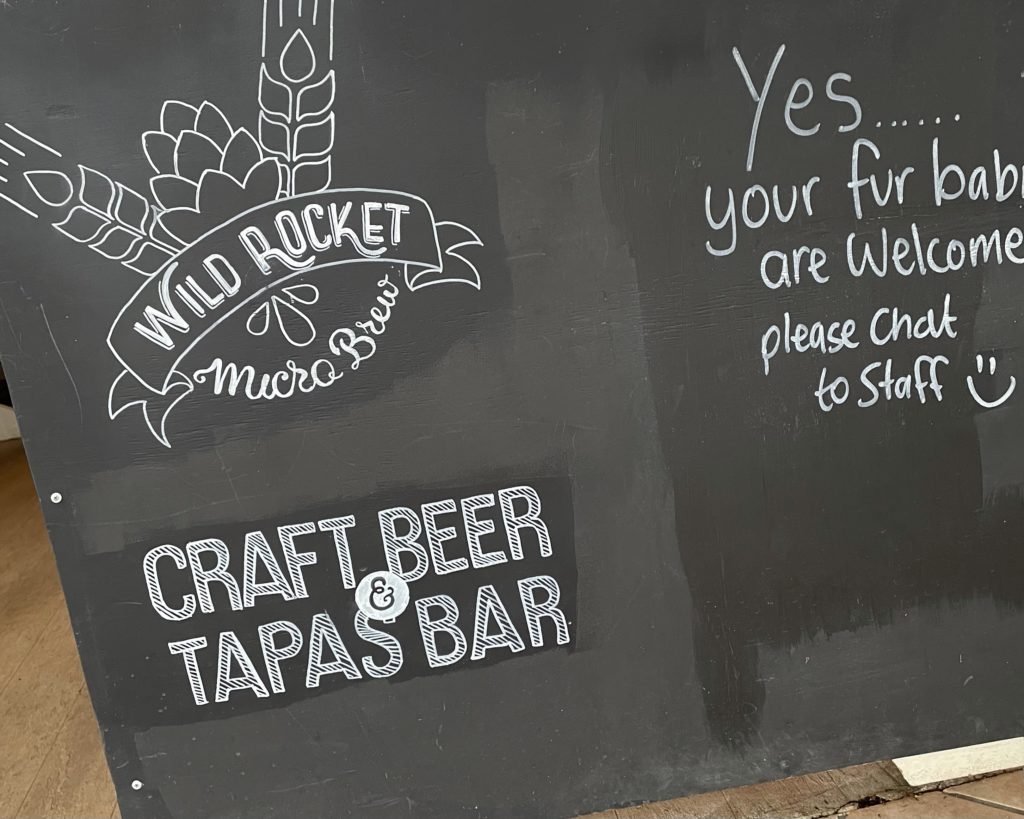 WILD ROCKET
Micro Brew
CRAFT BEER
&
TAPAS BAR
Yes......
your fur
are Welcome
please Chat
to Staff